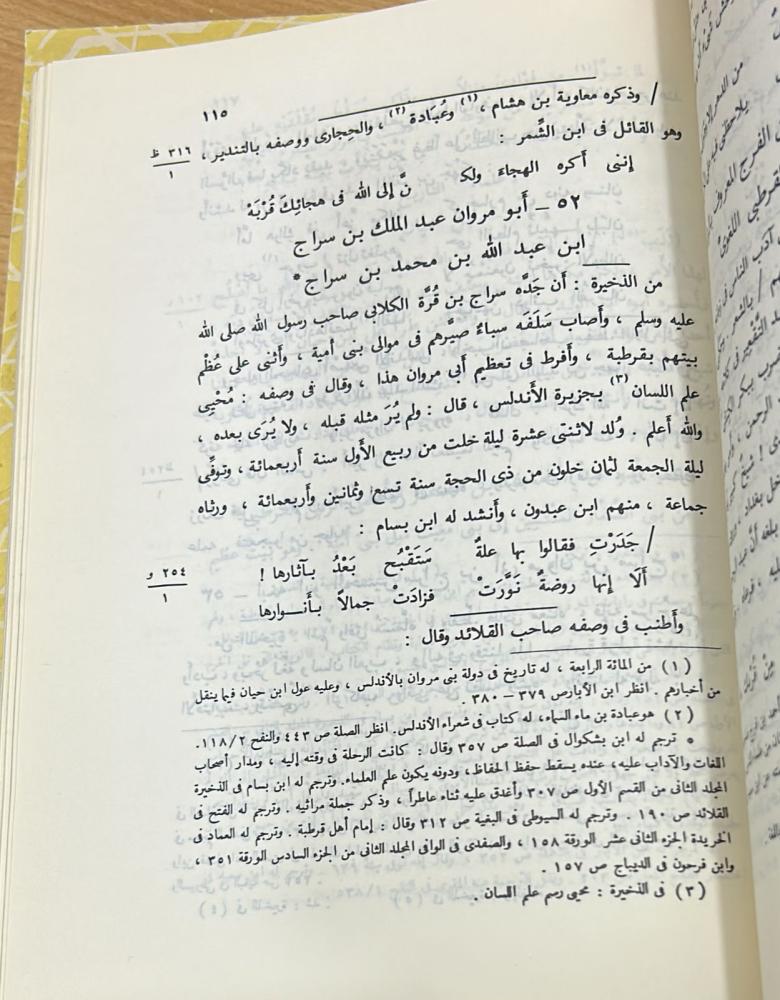 ١١٥
/ وذكره معاوية بن هشام ،(١) وعُبَادة(٢) ، والحِجارى ووصفه بالتندير ،
٣١٦ ظ
١
وهو القائل فى ابن الشَّمر :
إننى أكره الهجاءَ ولكـ نَّ إلى الله فى هجائِكَ قُرْبَهْ
٥٢ – أَبو مروان عبد الملك بن سراج
ابن عبد الله بن محمد بن سراج*
من الذخيرة : أَن جَدَّه سراج بن قُرَّة الكلابى صاحب رسول الله صلى الله
عليه وسلم ، وأَصاب سَلَفَه سباءٌ صيَّرهم فى موالى بنى أمية ، وأَثنى على عُظْم
بيتهم بقرطبة ، وأَفرط فى تعظيم أَبى مروان هذا ، وقال فى وصفه : مُحْيِى
علم اللسان(٣) بجزيرة الأَندلس ، قال : ولم يُرَ مثله قبله ، ولا يُرَى بعده ،
والله أَعلم . وُلد لاثنتى عشرة ليلة خلت من ربيع الأَول سنة أَربعمائة ، وتوفِّى
ليلة الجمعة لثمان خلون من ذى الحجة سنة تسع وثمانين وأَربعمائة ، ورثاه
جماعة ، منهم ابن عبدون ، وأَنشد له ابن بسام :
/ جَدَرْتِ فقالوا بها علةٌ سَتَقْبُح بَعْدُ بآثارها !
٢٥٤ و
١
أَلَا إنها روضةٌ نَوَّرَتْ فزادَتْ جمالاً بأَنــوارها
وأَطنب فى وصفه صاحب القلائد وقال :
( ١ ) من المائة الرابعة ، له تاريخ فى دولة بنى مروان بالأندلس ، وعليه عول ابن حيان فيما ينقل
من أخبارهم . انظر ابن الأبار ص ٣٧٩ – ٣٨٠ .
( ٢ ) هو عبادة بن ماء السماء، له كتاب فى شعراء الأندلس. انظر الصلة ص ٤٤٣ والنفح ١١٨/٢.
* ترجم له ابن بشكوال فى الصلة ص ٣٥٧ وقال : كانت الرحلة فى وقته إليه ، ومدار أصحاب
اللغات والآداب عليه، عنده يسقط حفظ الحفاظ، ودونه يكون علم العلماء. وترجم له ابن بسام فى الذخيرة
المجلد الثانى من القسم الأول ص ٣٠٧ وأغدق عليه ثناء عاطراً ، وذكر جملة مراثيه . وترجم له الفتح فى
القلائد ص ١٩٠ . وترجم له السيوطى فى البغية ص ٣١٢ وقال : إمام أهل قرطبة . وترجم له العماد فى
الخريدة الجزء الثانى عشر الورقة ١٥٨ ، والصفدى فى الوافى المجلد الثانى من الجزء السادس الورقة ٣٥١ ،
وابن فرحون فى الديباج ص ١٥٧ .
( ٣ ) فى الذخيرة : محيى رسم علم اللسان .